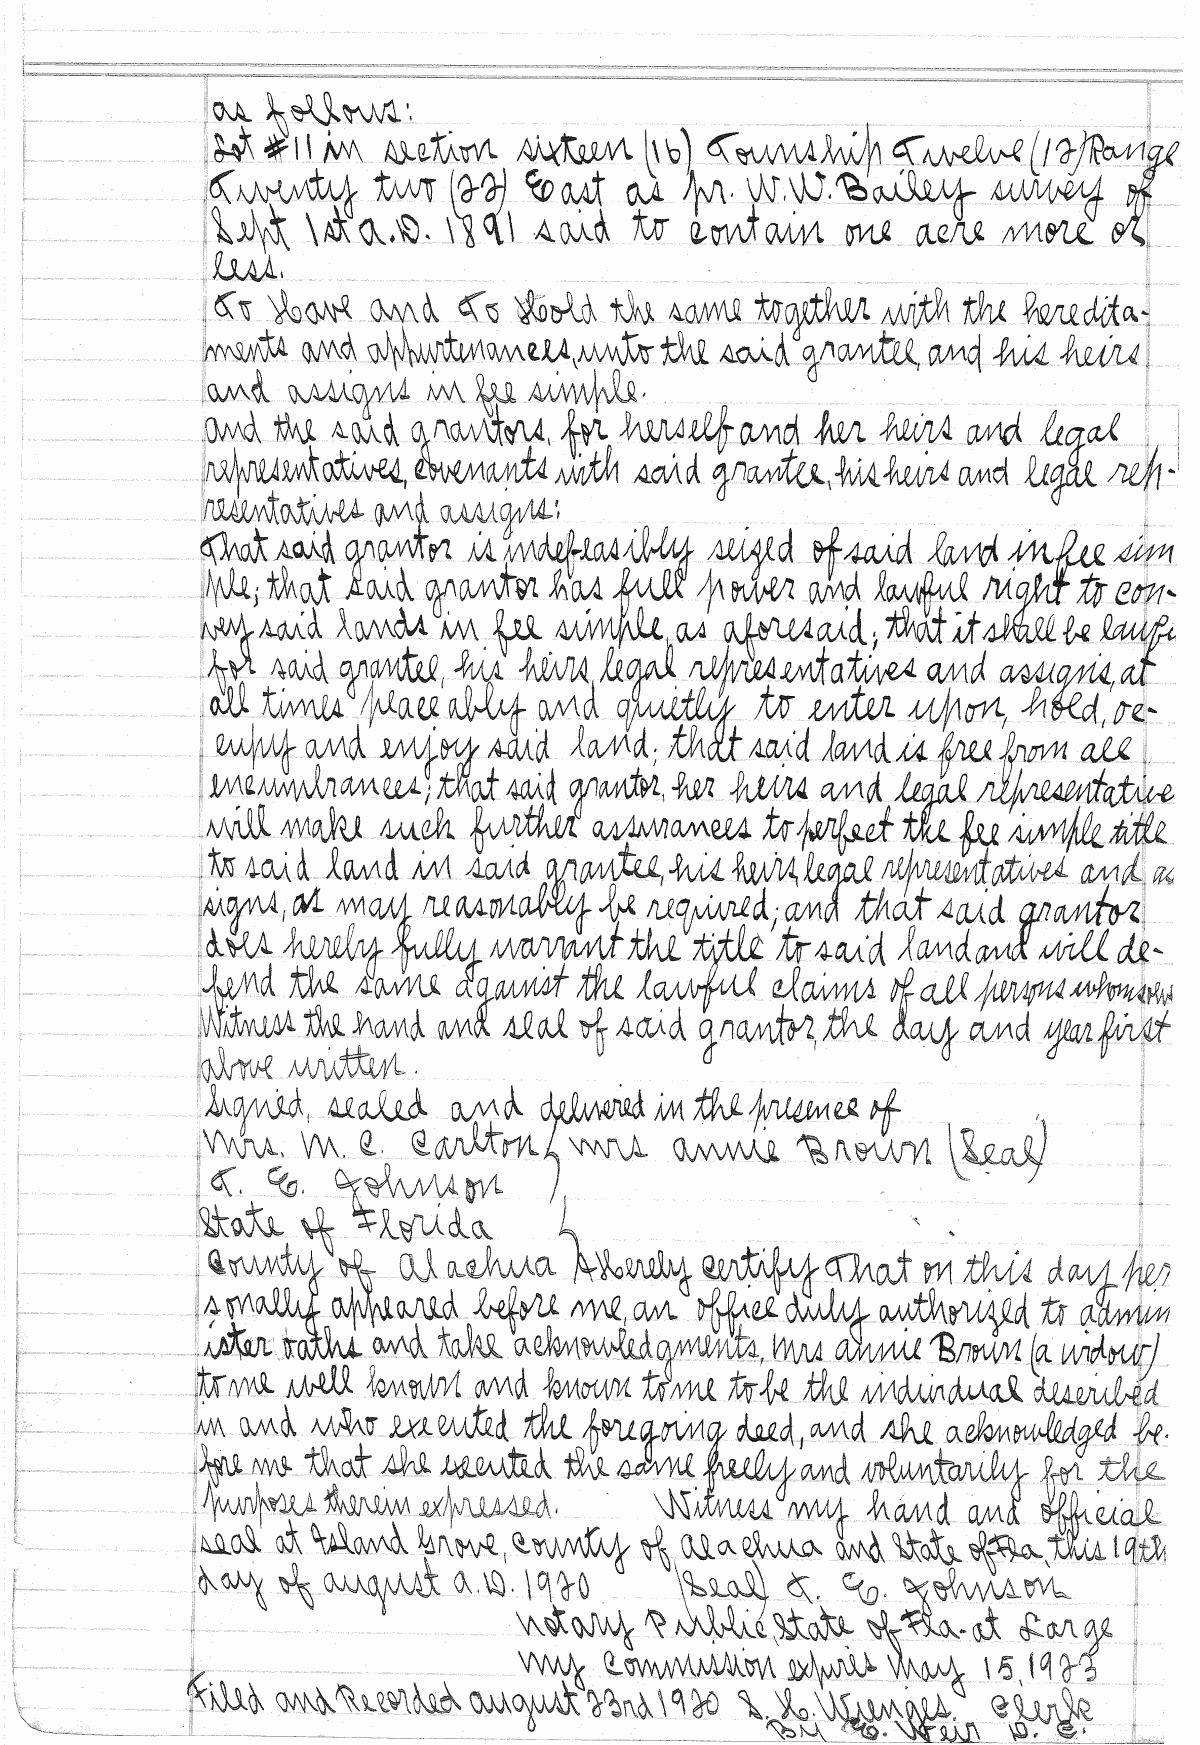 as follows:
Lot #11 in section sixteen (16) Township Twelve (12) Range
Twenty two (22) East as pr. W.W. Bailey survey of
Sept 1st A.D. 1891 said to contain one acre more or
less.
To Have and To Hold the same together with the heredita-
ments and appurtenances, unto the said grantee, and his heirs
and assigns in fee simple.
And the said grantors, for herself and her heirs and legal
representatives, covenants with said grantee, his heirs and legal rep-
resentatives and assigns:
That said grantor is indefeasibly seized of said land in fee sim
ple; that said grantor has full power and lawful right to con-
vey said lands in fee simple, as aforesaid; that it shall be lawfu
for said grantee, his heirs, legal representatives and assigns, at
all times peaceably and quietly to enter upon, hold, oc-
cupy and enjoy said land; that said land is free from all
encumbrances; that said grantor, her heirs and legal representative
will make such further assurances to perfect the fee simple title
to said land in said grantee, his heirs, legal representatives and as
signs, as may reasonably be required; and that said grantor
does hereby fully warrant the title to said land and will de-
fend the same against the lawful claims of all persons whomsoever
Witness the hand and seal of said grantor, the day and year first
above written.
Signed, sealed and delivered in the presence of
Mrs. M. C. Carlton } Mrs Annie Brown (Seal)
T. E. Johnson
State of Florida
County of Alachua } I Hereby certify That on this day per
sonally appeared before me, an office duly authorized to admin
ister oaths and take acknowledgments, Mrs Annie Brown (a widow)
to me well known and known to me to be the individual described
in and who executed the foregoing deed, and she acknowledged be-
fore me that she executed the same freely and voluntarily for the
purposes therein expressed. Witness my hand and official
seal at Island Grove, County of Alachua and State of Fla, this 19th
day of August A.D. 1920 (Seal) T. E. Johnson
Notary Public, State of Fla. at Large
My Commission expires May 15, 1923
Filed and Recorded August 23rd 1920 S. H. Wienges. Clerk
By E. Weir D. C.